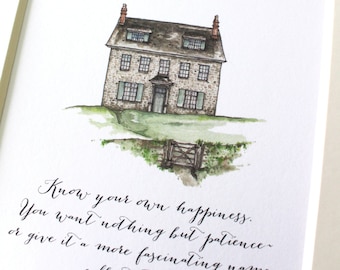 Know your own happiness.
You want nothing but patience-
or give it a more fascinating name